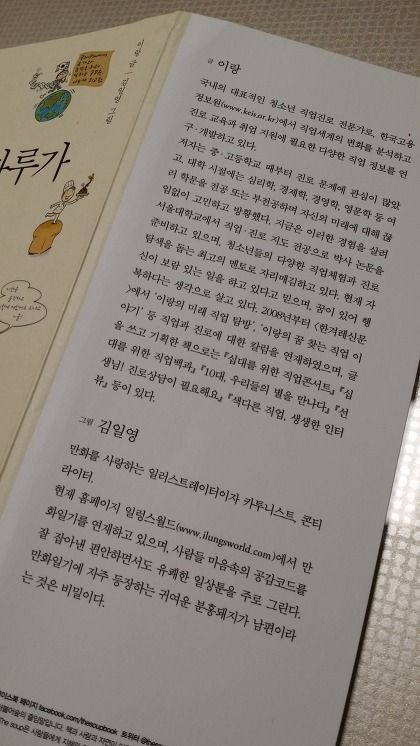 이랑 글 | 김일영 그림
하루가
글 이랑
국내의 대표적인 청소년 직업진로 전문가로, 한국고용
정보원(www.keis.or.kr)에서 직업세계의 변화를 분석하고
진로 교육과 취업 지원에 필요한 다양한 직업 정보를 연
구·개발하고 있다.
저자는 중·고등학교 때부터 진로 문제에 관심이 많았
고, 대학 시절에는 심리학, 경제학, 경영학, 영문학 등 여
러 학문을 전공 또는 부전공하며 자신의 미래에 대해 끊
임없이 고민하고 방황했다. 지금은 이러한 경험을 살려
서울대학교에서 직업·진로 지도 전공으로 박사 논문을
준비하고 있으며, 청소년들의 다양한 직업체험과 진로
탐색을 돕는 최고의 멘토로 자리매김하고 있다. 현재 자
신이 보람 있는 일을 하고 있다고 믿으며, 꿈이 있어 행
복하다는 생각으로 살고 있다. 2008년부터 <한겨레신문
>에서 '이랑의 미래 직업 탐방', '이랑의 꿈 찾는 직업 이
야기' 등 직업과 진로에 대한 칼럼을 연재하였으며, 글
을 쓰고 기획한 책으로는 『십대를 위한 직업콘서트』 『십
대를 위한 직업백과』 『10대, 우리들의 별을 만나다』 『선
생님! 진로상담이 필요해요』 『색다른 직업, 생생한 인터
뷰』 등이 있다.
그림 김일영
만화를 사랑하는 일러스트레이터이자 카투니스트, 콘티
라이터.
현재 홈페이지 일렁스월드(www.ilungsworld.com)에서 만
화일기를 연재하고 있으며, 사람들 마음속의 공감코드를
잘 잡아낸 편안하면서도 유쾌한 일상툰을 주로 그린다.
만화일기에 자주 등장하는 귀여운 분홍돼지가 남편이라
는 것은 비밀이다.
페이스북 페이지 facebook.com/thesoupbook 트위터 @thes